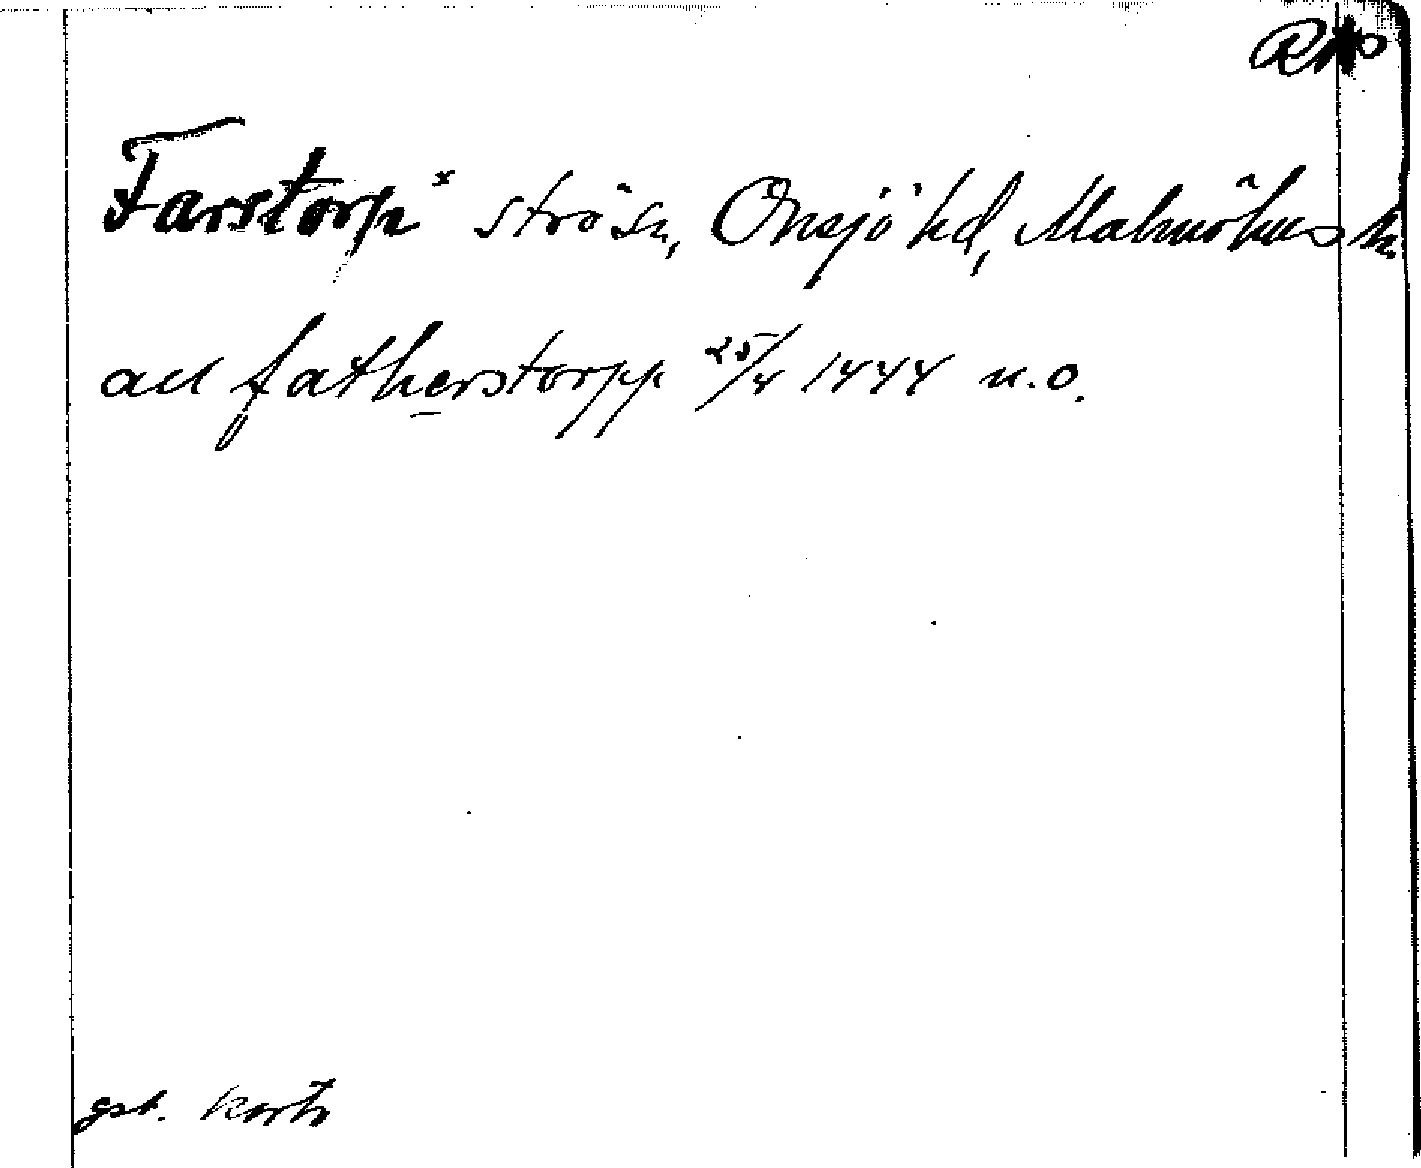 Farstorp x strö sn, Onsjö hd, Malmöhus l.
ad fatherstorpp 25/4 1444 u.o.
gst. kort